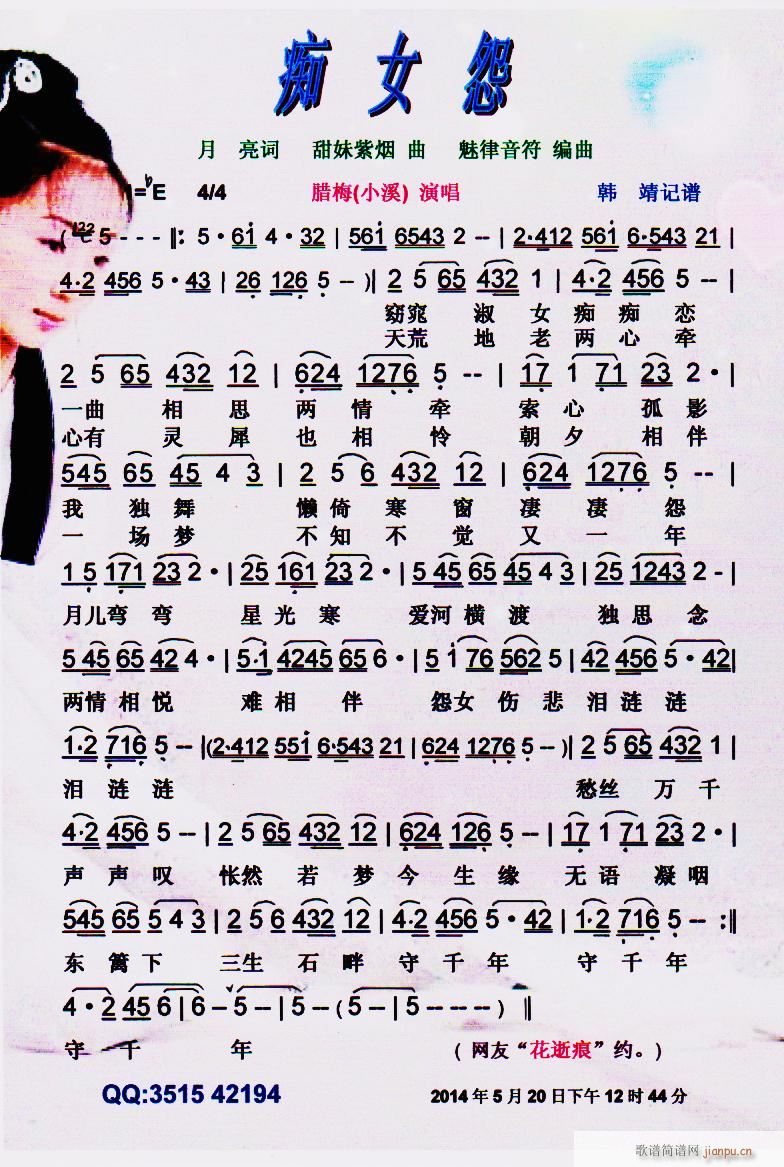 痴女怨
月 亮词 甜妹紫烟 曲 魅律音符 编曲
1=♭E 4/4 腊梅(小溪) 演唱 韩 靖记谱
( 122 5 - - - ‖: 5·61 4·32 | 561 6543 2 -- | 2·412 561 6·543 21 |
4·2 456 5·43 | 26 126 5 -- )| 2 5 65 432 1 | 4·2 456 5 -- |
窈窕 淑 女 痴 痴 恋
天荒 地 老 两 心 牵
2 5 65 432 12 | 624 1276 5 -- | 17 1 71 23 2· |
一曲 相 思 两 情 牵 索 心 孤 影
心有 灵 犀 也 相 怜 朝 夕 相 伴
545 65 45 4 3 | 2 5 6 432 12 | 624 1276 5 -- |
我 独 舞 懒 倚 寒 窗 凄 凄 怨
一 场 梦 不 知 不 觉 又 一 年
1 5 171 23 2· | 25 161 23 2· | 5 45 65 45 4 3 | 25 1243 2 - |
月儿弯 弯 星 光 寒 爱河 横 渡 独 思 念
5 45 65 42 4· | 5·1 4245 65 6· | 5 1 76 562 5 | 42 456 5·42 |
两情 相 悦 难 相 伴 怨女 伤 悲 泪 涟 涟
1·2 716 5 -- |(2·412 551 6·543 21 | 624 1276 5 -- )| 2 5 65 432 1 |
泪 涟 涟 愁丝 万 千
4·2 456 5 -- | 2 5 65 432 12 | 624 126 5 -- | 17 1 71 23 2· |
声 声 叹 怅然 若 梦 今 生 缘 无 语 凝 咽
545 65 5 4 3 | 2 5 6 432 12 | 4·2 456 5·42 | 1·2 716 5 -- :‖
东 篱 下 三生 石 畔 守 千 年 守 千 年
4·2 45 6 | 6 - 5 - | 5 - - ( 5 - | 5 - - - - ) ‖
守 千 年 ( 网友“花逝痕”约。)
QQ:3515 42194 2014 年 5 月 20 日下午 12 时 44 分
歌谱简谱网 jianpu.cn